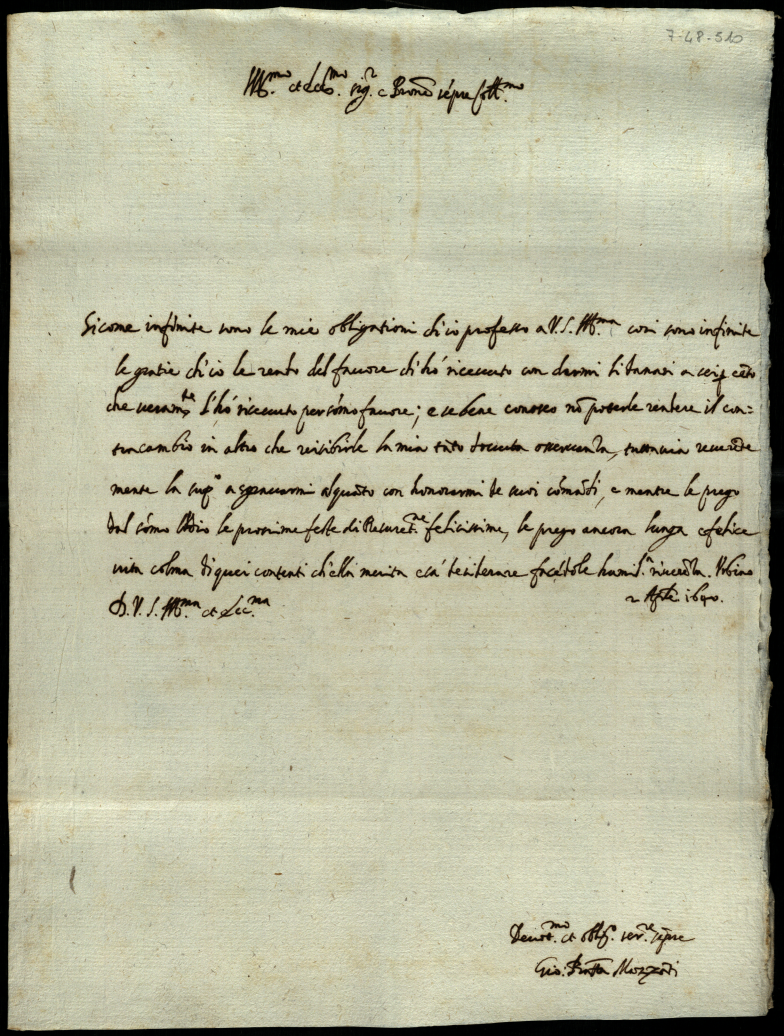 7-48-510
Ill.mo et Ecc.mo sig.r e Prone sẽpre Coll.mo
Sicome infinite sono le mie obligationi ch'io professo a V.S. Ill.ma cosi sono infinite
le gratie ch'io le rendo del favore ch'hò ricevuto con darmi li danari a
che veram.te l'hò ricevuto per sõmo favore; e se bene conosco nõ poterle rendere il con=
tracambio in altro che esibirle la mia osservanza, tuttavia
mente la sup.co a gravarmi alquãto con honorarmi de suoi cõmãdi, e mentre le prego
dal sõmo Iddio le prossime feste di Resuret.ne felicissime, le prego ancora lunga e felice
vita colma di quei contenti ch'ella merita e sà desiderare facẽdole humil.a riverẽza. Urbino
D. V. S. Ill.ma et Ecc.ma
2 Aprile 1640.
Devot.mo et oblig. ser.re sẽpre
Gio: Batta